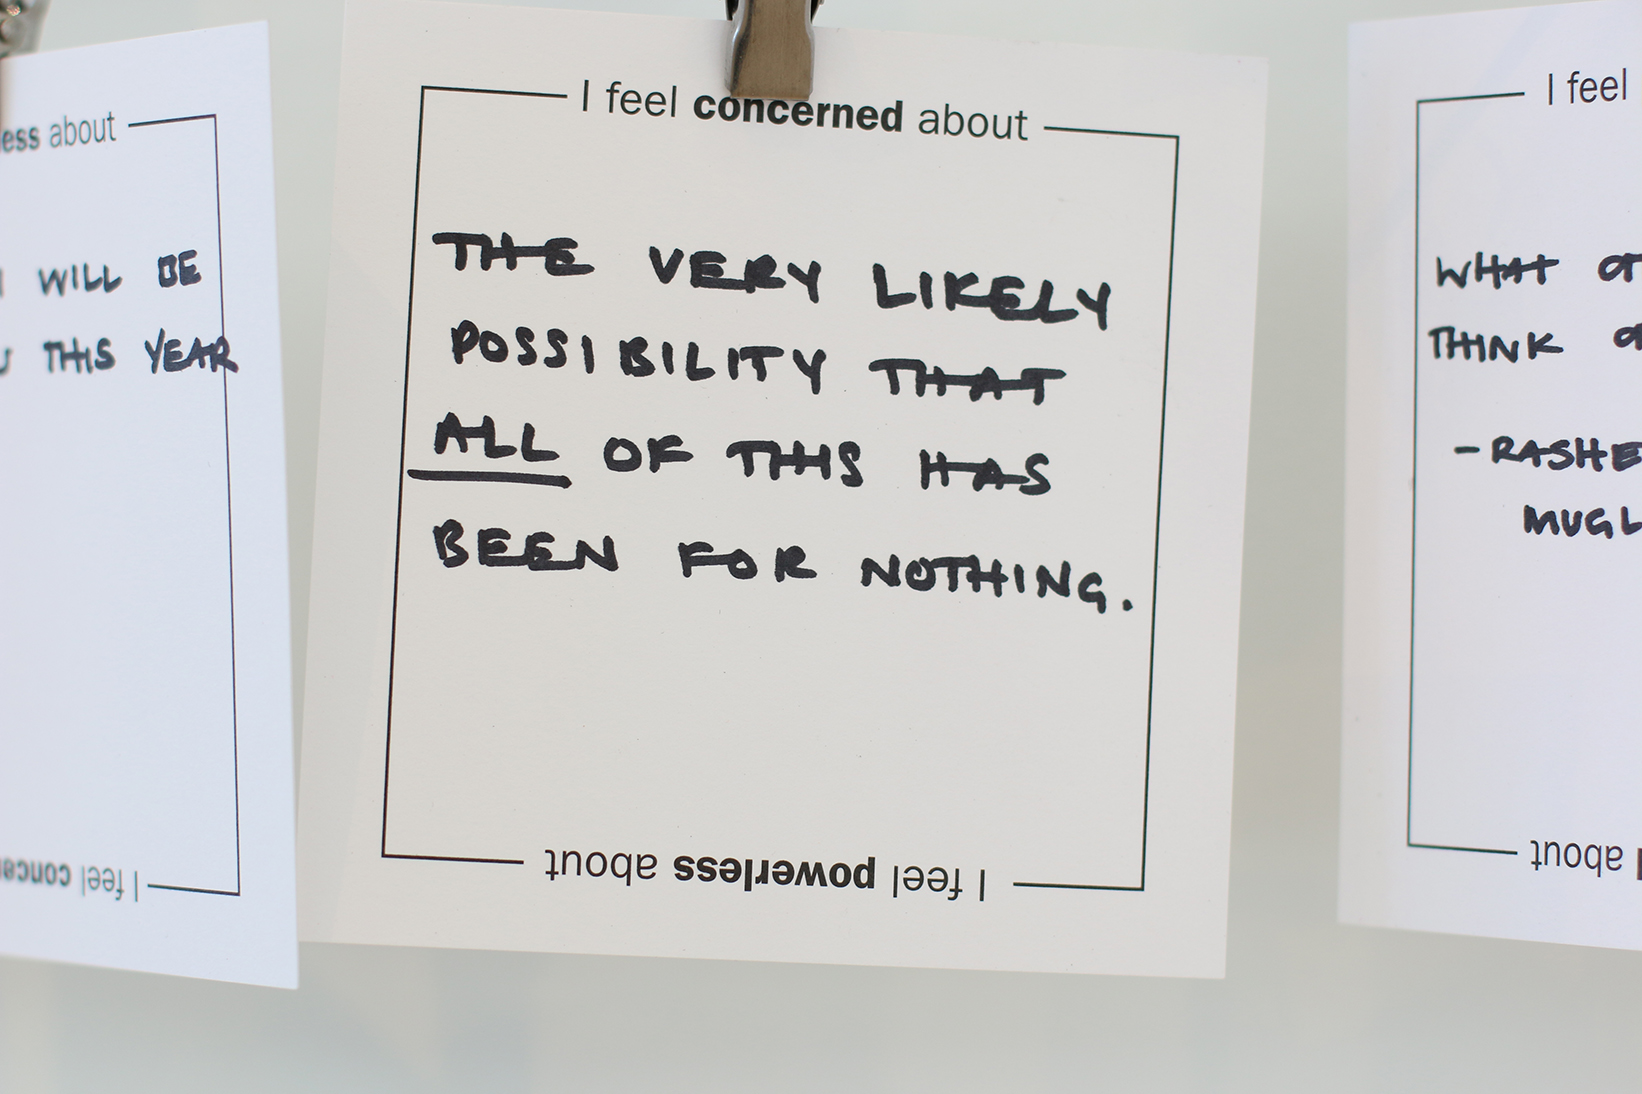 ess about
WILL BE
THIS YEAR
I feel conce
I feel concerned about
THE VERY LIKELY
POSSIBILITY THAT
ALL OF THIS HAS
BEEN FOR NOTHING.
I feel powerless about
I feel
WHAT
THINK
- RASHE
MUGL
about